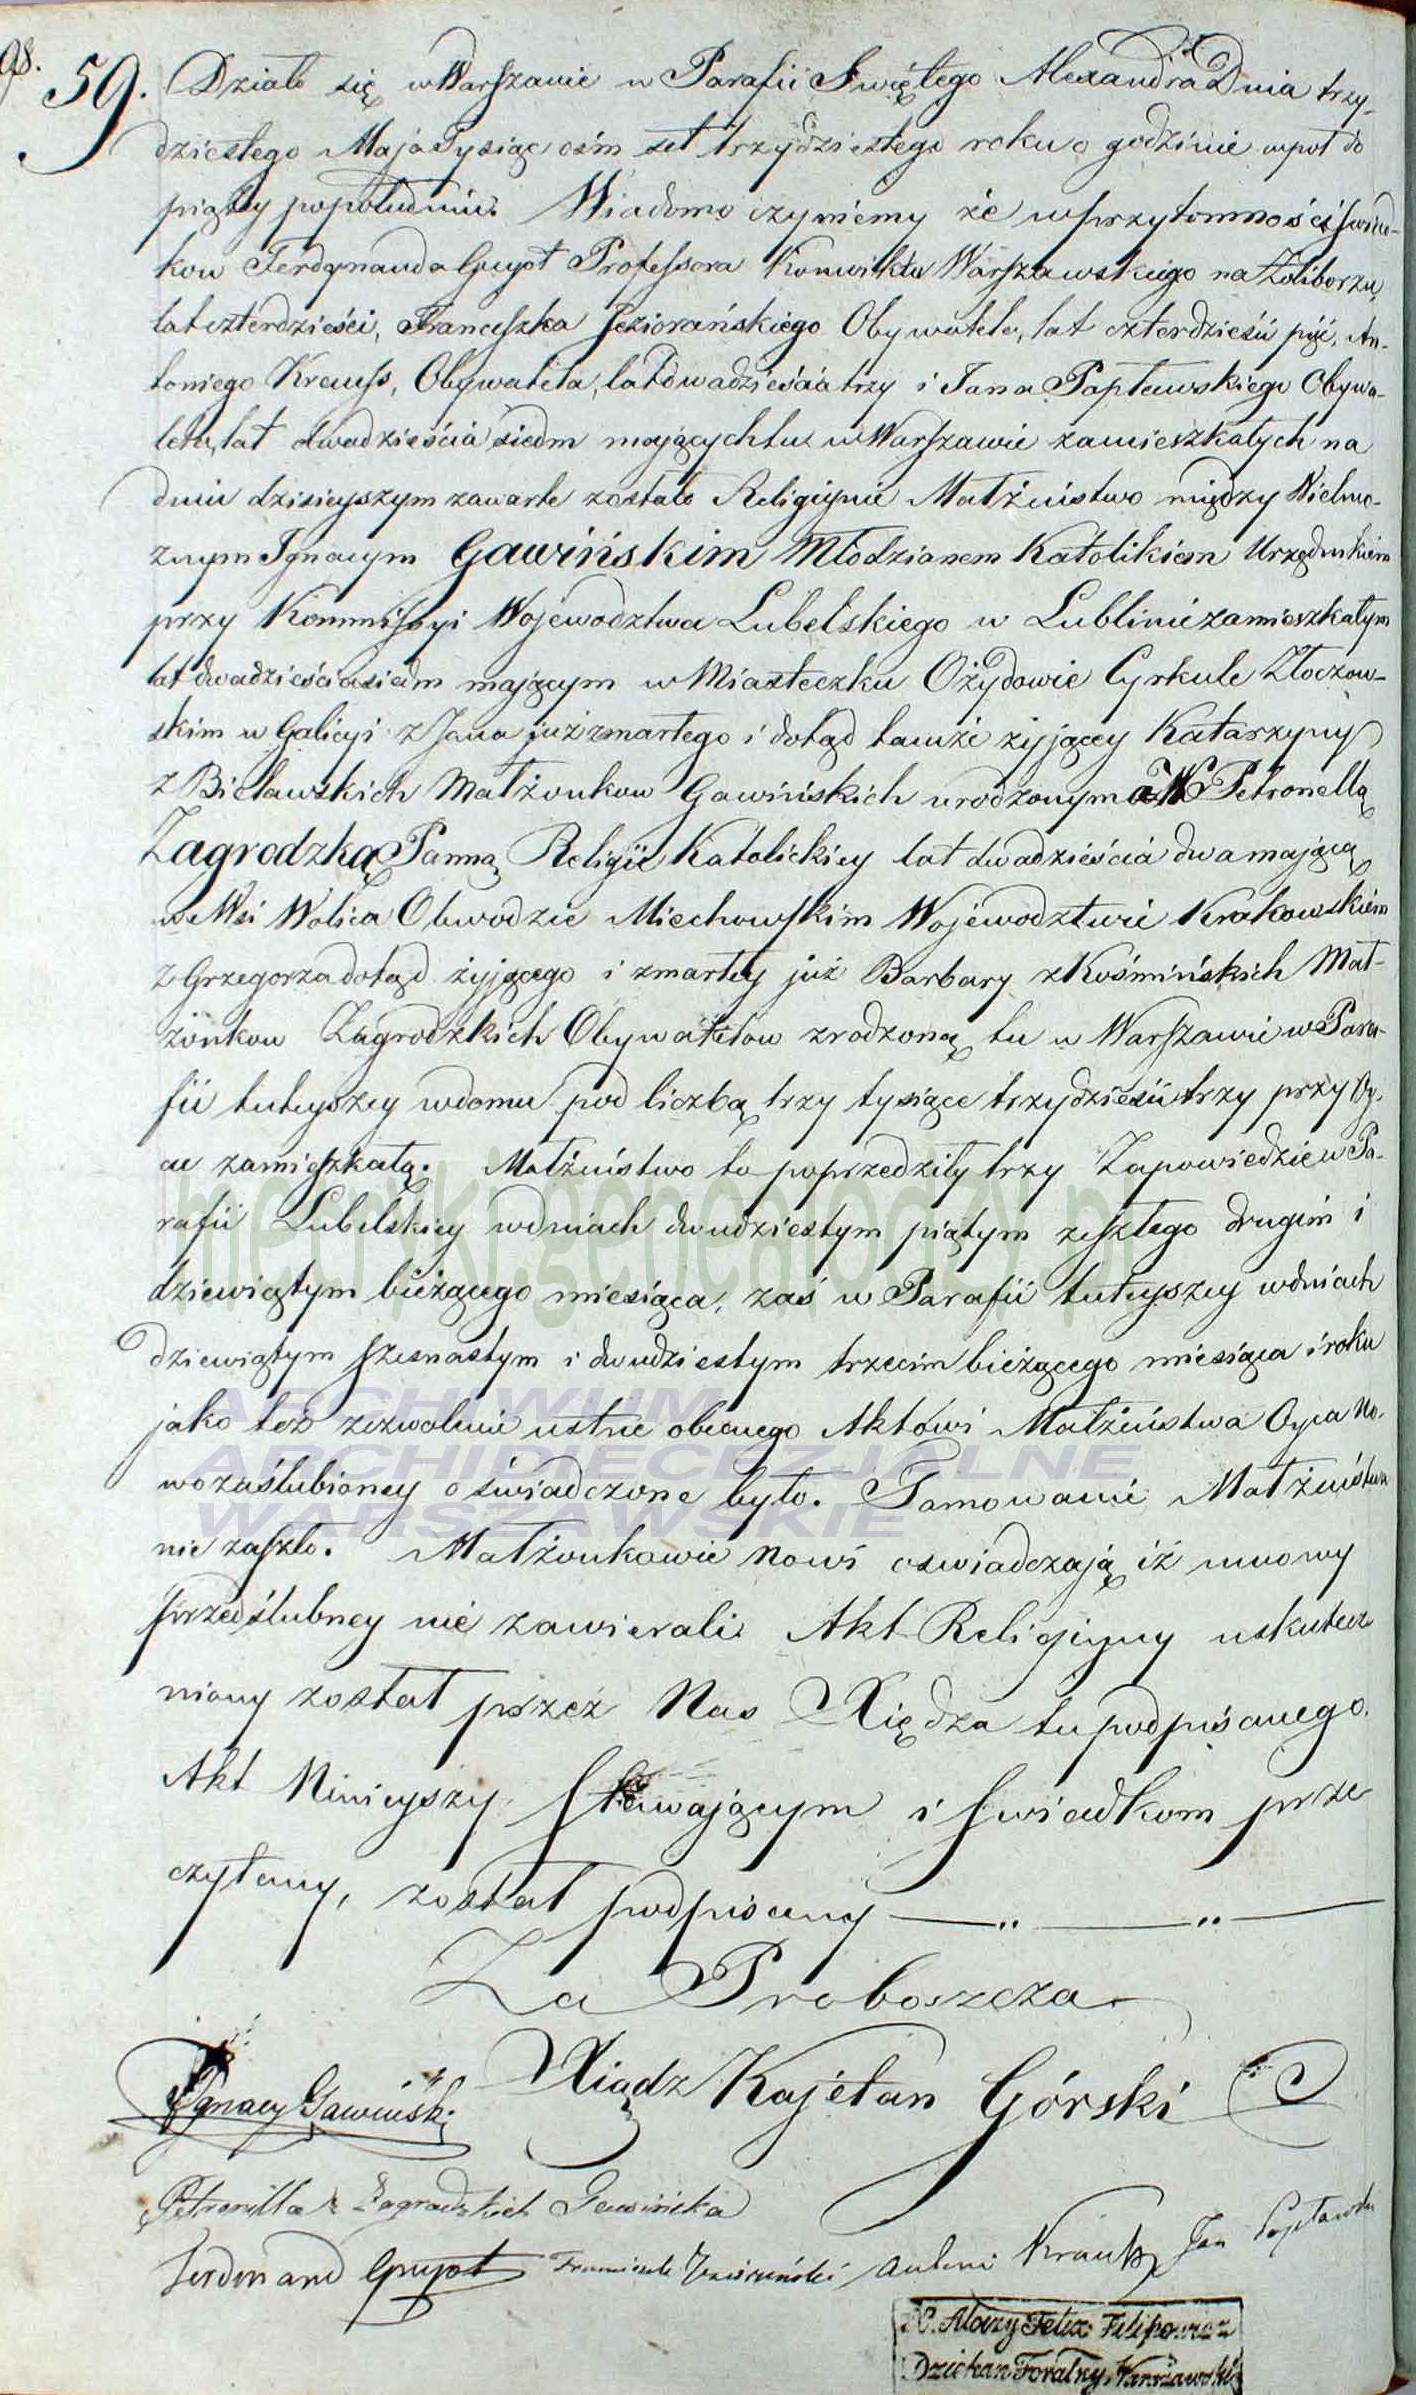 98.
59. Działo się w Warszawie w Parafii Swiętego Alexandra Dnia trzy-
dziestego Maja Tysiąc ośm set trzydziestego roku o godzinie wpoł do
piątey popołudniu. Wiadomo czyniemy że w przytomności świad-
kow Ferdynanda Guyot Professora Konwiktu Warszawskiego na Żoliborzu,
lat czterdzieści, Franciszka Jeziorańskiego Obywatela, lat czterdzieści pięć, An-
toniego Krauss, Obywatela, lat dwadzieścia trzy i Jana Popławskiego Obywa-
tela, lat dwadzieścia siedm maiących tu w Warszawie zamieszkałych na
dniu dzisieyszym zawarte zostało Religiynie Małżeństwo między Wielmo-
żnym Ignacym Gawińskim Młodzianem Katolikiem Urzędnikiem
przy Kommissyi Województwa Lubelskiego w Lublinie zamieszkałym
lat dwadzieścia siedm mającym w Miasteczku Ożydowie Cyrkule Złoczow-
skim w Galicyi z Jana już zmarłego i dotąd tamże żyjącey Katarzyny
z Bieławskich Małżonkow Gawińskich urodzonym a W Petronellą
Zagrodzką Panną Religii Katolickiey lat dwadzieścia dwa mającą
we Wsi Wolica Obwodzie Miechowskim Województwie Krakowskiem
z Grzegorza dotąd żyjącego i zmarłey już Barbary z Kośmińskich Mał-
żonkow Zagrodzkich Obywatelow zrodzoną tu w Warszawie w Para-
fii tuteyszey w domu pod liczbą trzy tysiące trzydzieści trzy przy Oy-
cu zamieszkałą. Małżeństwo to poprzedziły trzy Zapowiedzie w Pa-
rafii Lubelskiey w dniach dwudziestym piątym zeszłego drugim i
dziewiątym bieżącego miesiąca, zaś w Parafii tuteyszey w dniach
dziewiątym szesnastym i dwudziestym trzecim bieżącego miesiąca i roku
jako też zezwolenie ustne obecnego Aktowi Małżeństwa Oyca No-
wozaślubioney oświadczone było. Tamowanie Małżeństwa
nie zaszło. Małżonkowie nowi oswiadczają iż umowy
przedślubney nie zawierali Akt Religiyny uskutecz
niony został przez Nas Xiędza tu podpisanego.
Akt Ninieyszy Stawającym i Swiadkom prze
czytany, został podpisany
Za Proboszcza
Xiądz Kajetan Górski
Ignacy Gawiński
Petronilla z Zagrodzkich Gawińska
Ferdinand Guyot Franciszek Jeziorański Antoni Krauss Jan Popławski
X. Aloizy Felix Filipowicz
Dziekan Foralny Warszawski
metryki.genealodzy.pl
ARCHIWUM
ARCHIDIECEZJALNE
WARSZAWSKIE